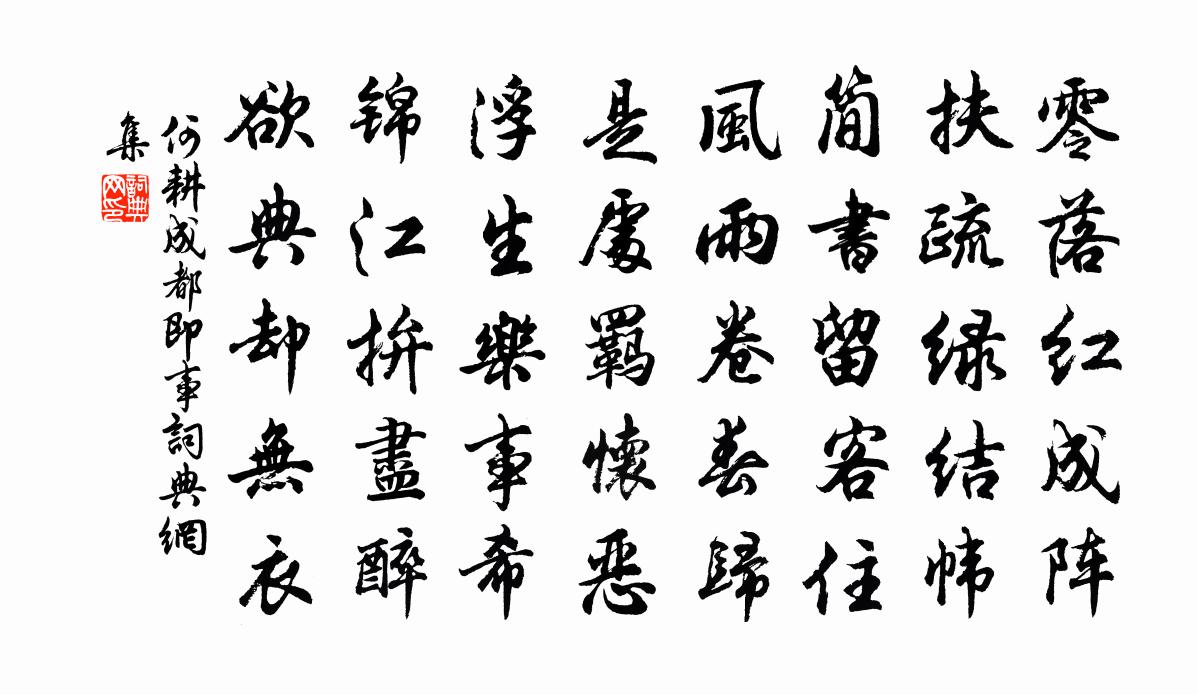 零落红成阵
扶疏绿结帏
简書留客住
風雨卷春歸
是處羁懷恶
浮生樂事希
锦江拚盡醉
欲典却無衣
何耕成都即事詞典網
集
詞典
网印